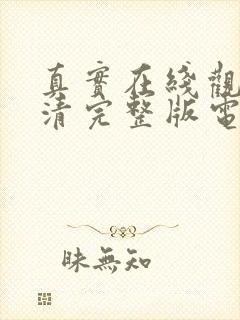 真實在綫觀
清完整版電
昧無知